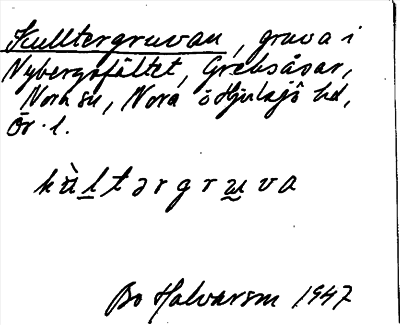 Kulltergruvan, gruva i
Nybergsfältet, Greksåsar,
Nora sn, Nora o Hjulsjö hd,
Ör. l.
kùl̲tərgru̲va
Bo Halvarsson 1947